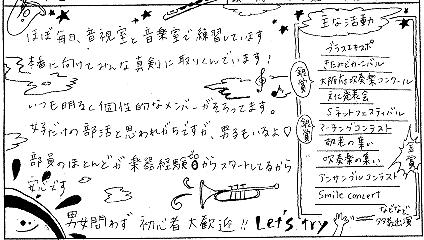 ほぼ毎日、音視室と音楽室で練習しています
本番に向けてみんな真剣に取りくんでいます!
いつも明るく個性的なメンバーがそろってます。
女子だけの部活と思われがちですが、男子もいるよ♡
部員のほとんどが楽器経験0からスタートしてるから
安心です
男女問わず 初心者大歓迎!! Let's try
主な活動
ブラスエキスポ
きたのどカーバル
大阪府吹奏楽コンクール
銀賞
文化発表会
Sネットフェスティバル
マーチングコンテスト
銀賞
初老の集い
吹奏楽の集い
金賞
アンサンブルコンテスト
Smile concert
などなど